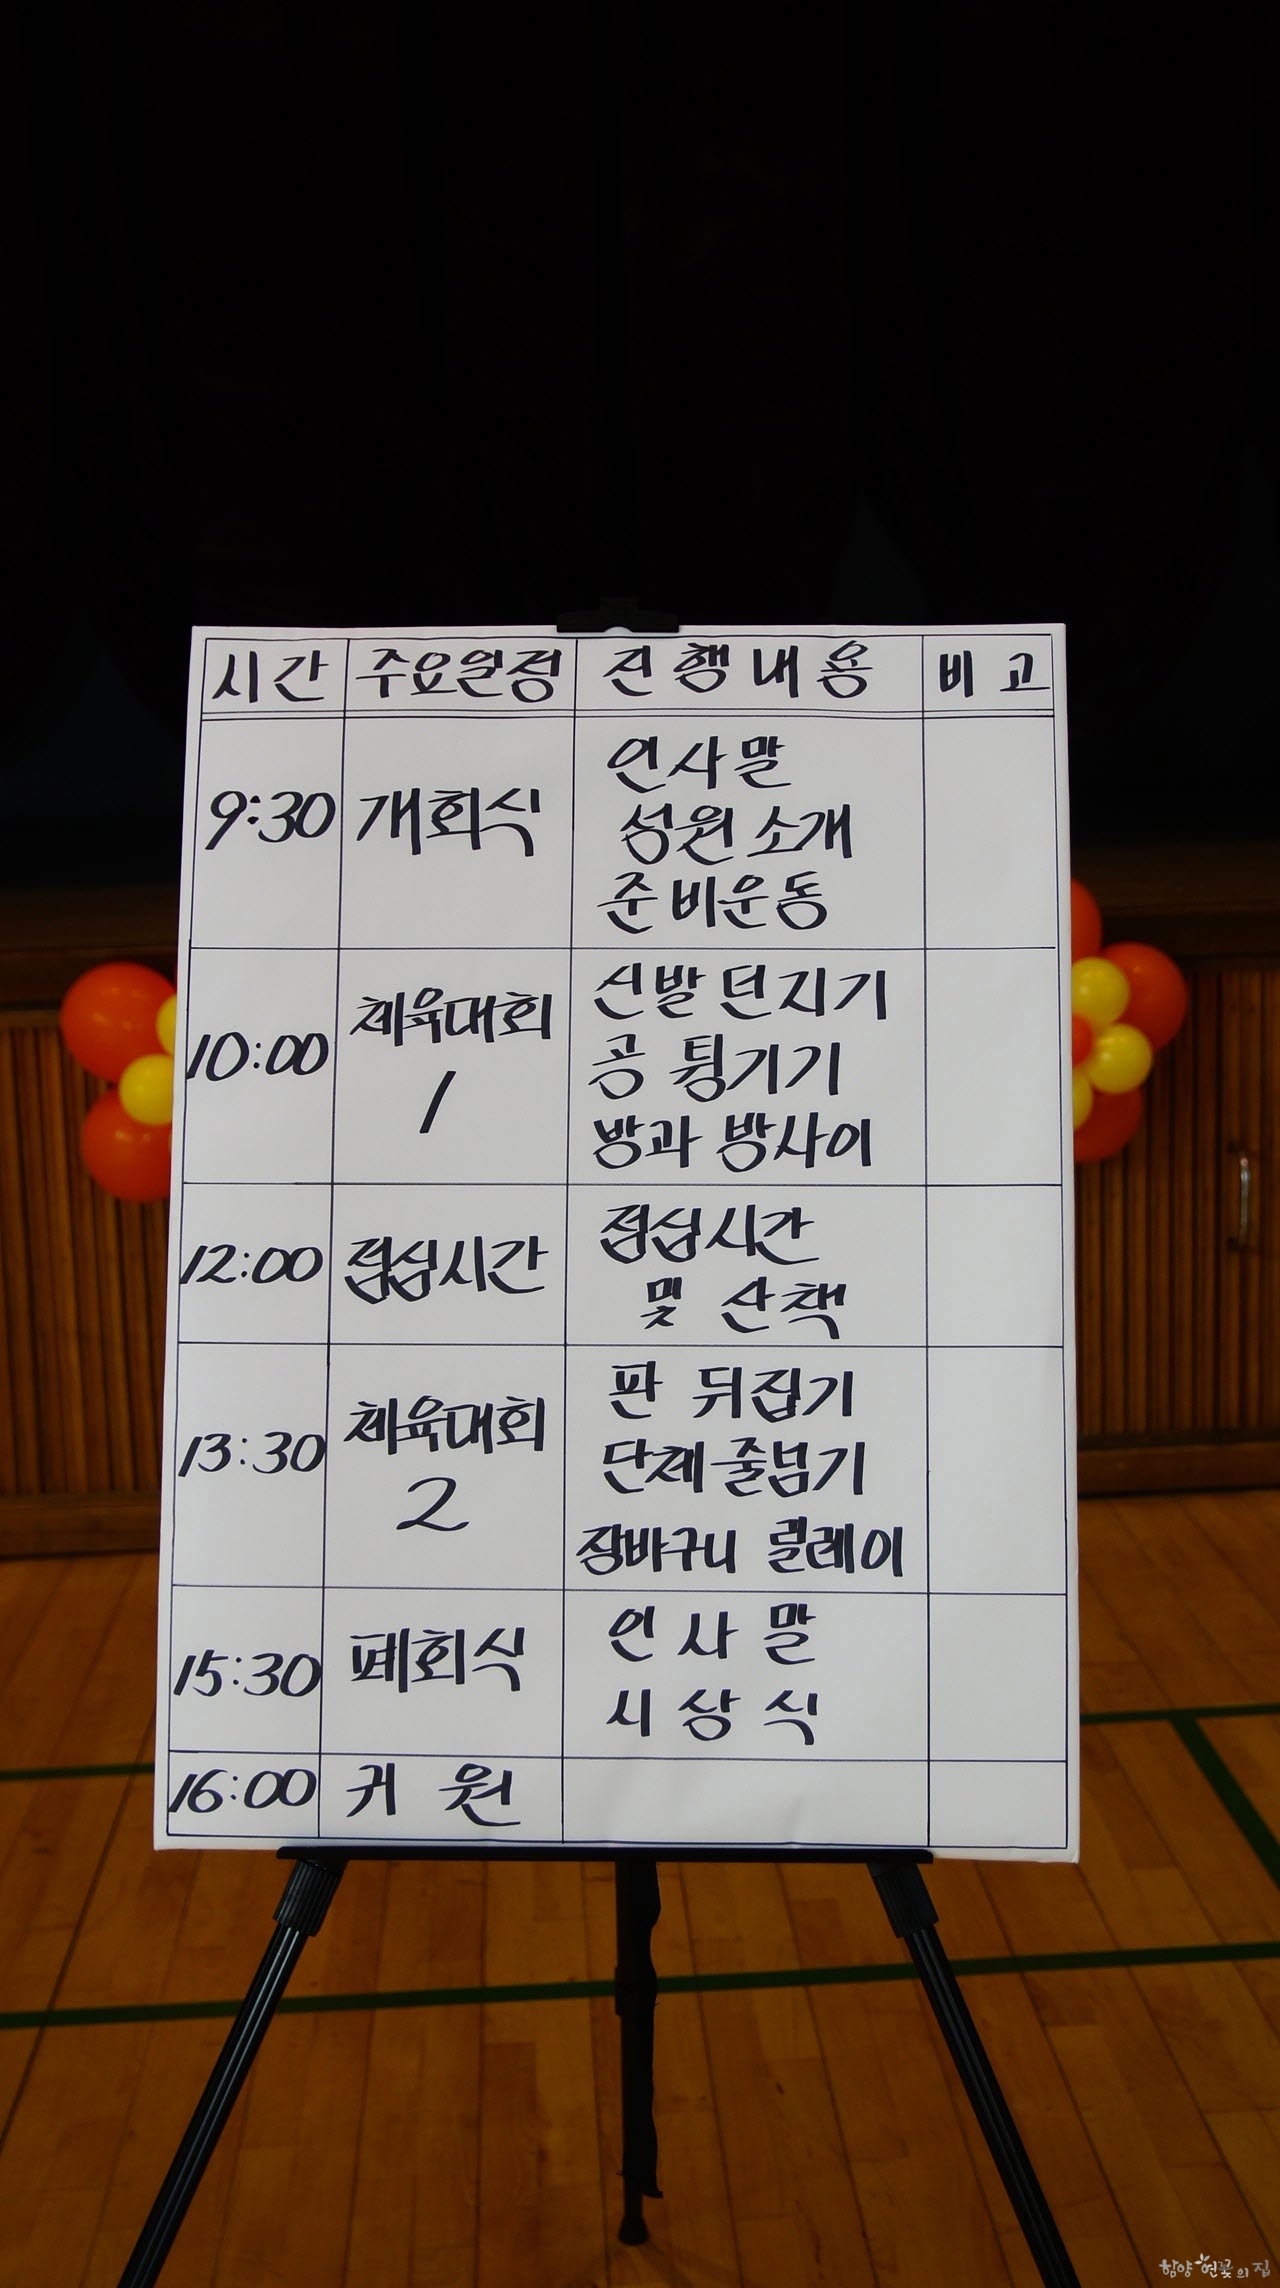 시간 주요일정 진행내용 비고
9:30 개회식 인사말
성원소개
준비운동
10:00 체육대회 1 신발던지기
공 튕기기
방과 방사이
12:00 점심시간 점심시간
및 산책
13:30 체육대회 2 판 뒤집기
단체줄넘기
장바구니 릴레이
15:30 폐회식 인사말
시상식
16:00 귀원
함양연꽃의집